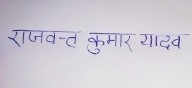 राजवन्त कुमार यादव